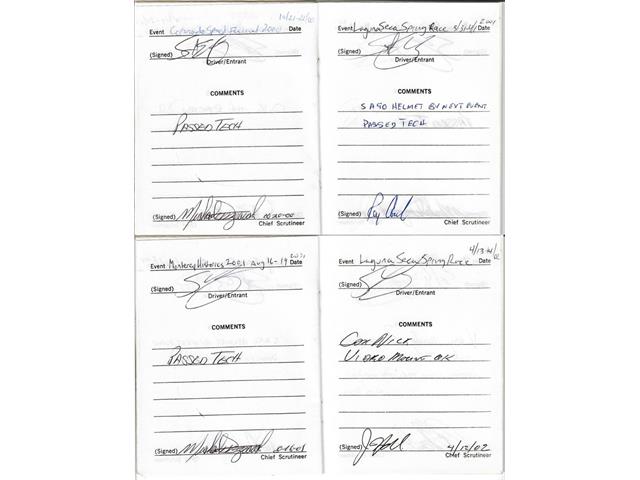 10/21-22/00
Event Coronado Speed Festival 2000 Date
(Signed)
Driver/Entrant
COMMENTS
PASSED TECH
(Signed) 10-20-00
Chief Scrutineer
2001
Event Laguna Seca Spring Race Date
(Signed)
Driver/Entrant
COMMENTS
SA90 HELMET BY NEXT EVENT
PASSED TECH
(Signed)
Chief Scrutineer
2001
Event Monterey Historics 2001 Aug 16-19 Date
(Signed)
Driver/Entrant
COMMENTS
PASSED TECH
(Signed)
Chief Scrutineer
Event Laguna Seca Spring Race Date
(Signed)
Driver/Entrant
COMMENTS
VIDEO MOUNT OK
(Signed) 4/12/02
Chief Scrutineer